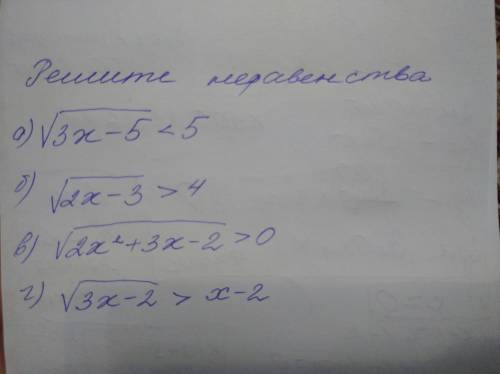 Решите неравенства
а) √3x-5 < 5
б) √2x-3 > 4
в) √2x²+3x-2 > 0
г) √3x-2 > x-2